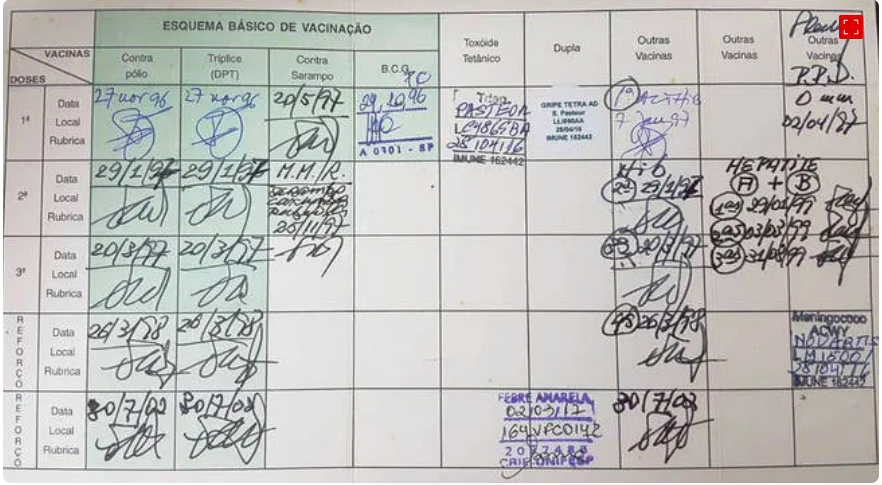 ESQUEMA BÁSICO DE VACINAÇÃO
VACINAS
DOSES
Contra pólio
Tríplice (DPT)
Contra Sarampo
B.C.G.
Toxóide Tetânico
Dupla
Outras Vacinas
Outras Vacinas
Outras Vacinas
P.P.D.
1ª
Data
Local
Rubrica
27 nov 96
27 nov 96
20/5/97
29,10,96
A 0701 - SP
PASTEUR
28/04/16
IMUNE 162442
GRIPE TETRA AD
S. Pasteur
28/04/16
IMUNE 162442
1ª Act-Hib
7 jan 97
0 mm
02/04/97
2ª
Data
Local
Rubrica
29/1/97
29/1/97
M.M./R.
sarampo
caxumba
rubéola
25/11/97
Hib
2ª 29/1/97
HEPATITE
A + B
1as 29/01/99
2as 03/03/99
3as 31/08/99
3ª
Data
Local
Rubrica
20/3/97
20/3/97
3ª 20/3/97
REFORÇO
Data
Local
Rubrica
26/3/98
26/3/98
4ª 26/3/98
Meningococo
ACWY
NOVARTIS
28/04/16
IMUNE 162442
REFORÇO
Data
Local
Rubrica
30/7/02
30/7/02
FEBRE AMARELA
02/03/17
164VFC014Z
CRIE UNIFESP
30/7/02